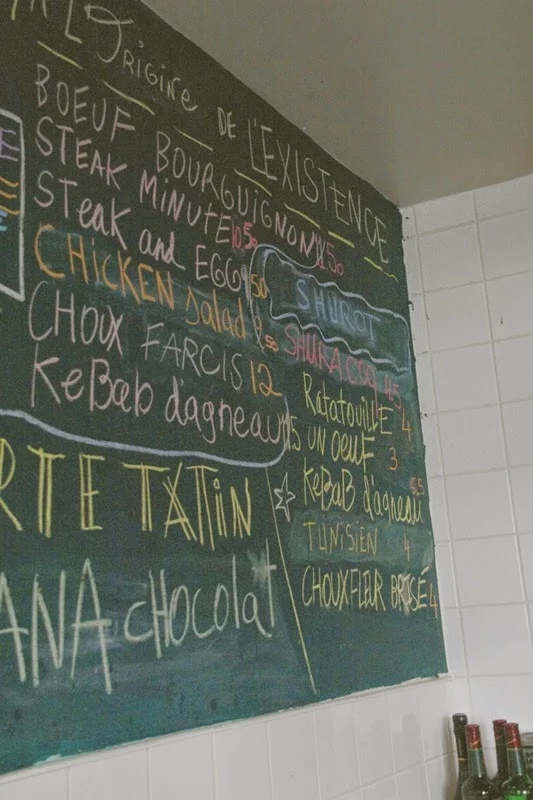 L'ORIGINE DE L'EXISTENCE
BOEUF BOURGUIGNON 11.50
STEAK MINUTE 10.50
STeak and EGG
CHICKEN Salad
CHOUX FARCIS 12
KeBab d'agneau
SHUROT
Ratatouille 4
UN OEUF 3
KeBaB d'agneau
TUNiSiEN 4
CHOUXFLEUR 4
RTE TATTiN
ANA CHOCOLAT